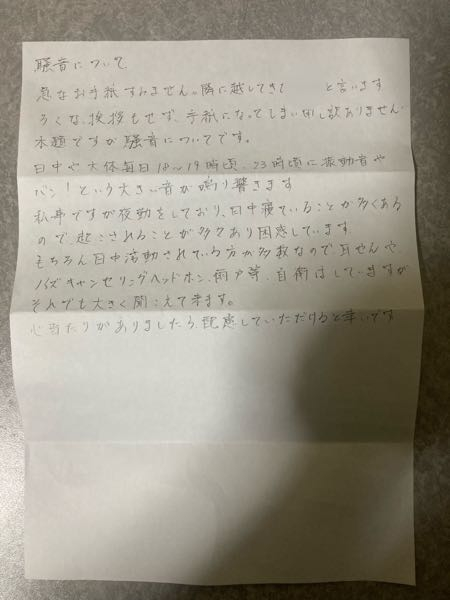 騒音について
急なお手紙すみません。隣に越してきた と言います
ろくな挨拶もせず、手紙になってしまい申し訳ありません。
本題ですが騒音についてです。
日中や大体毎日18〜19時頃、23時頃に振動音や
バン!という大きい音が鳴り響きます
私事ですが夜勤をしており、日中寝ていることが多くある
ので起こされることが多々あり困惑しています
もちろん日中活動されている方が多数なので耳せんや、
ノイズキャンセリングヘッドホン、雨戸等、自衛はしていますが
それでも大きく聞こえて来ます。
心当たりがありましたら、配慮していただけると幸いです